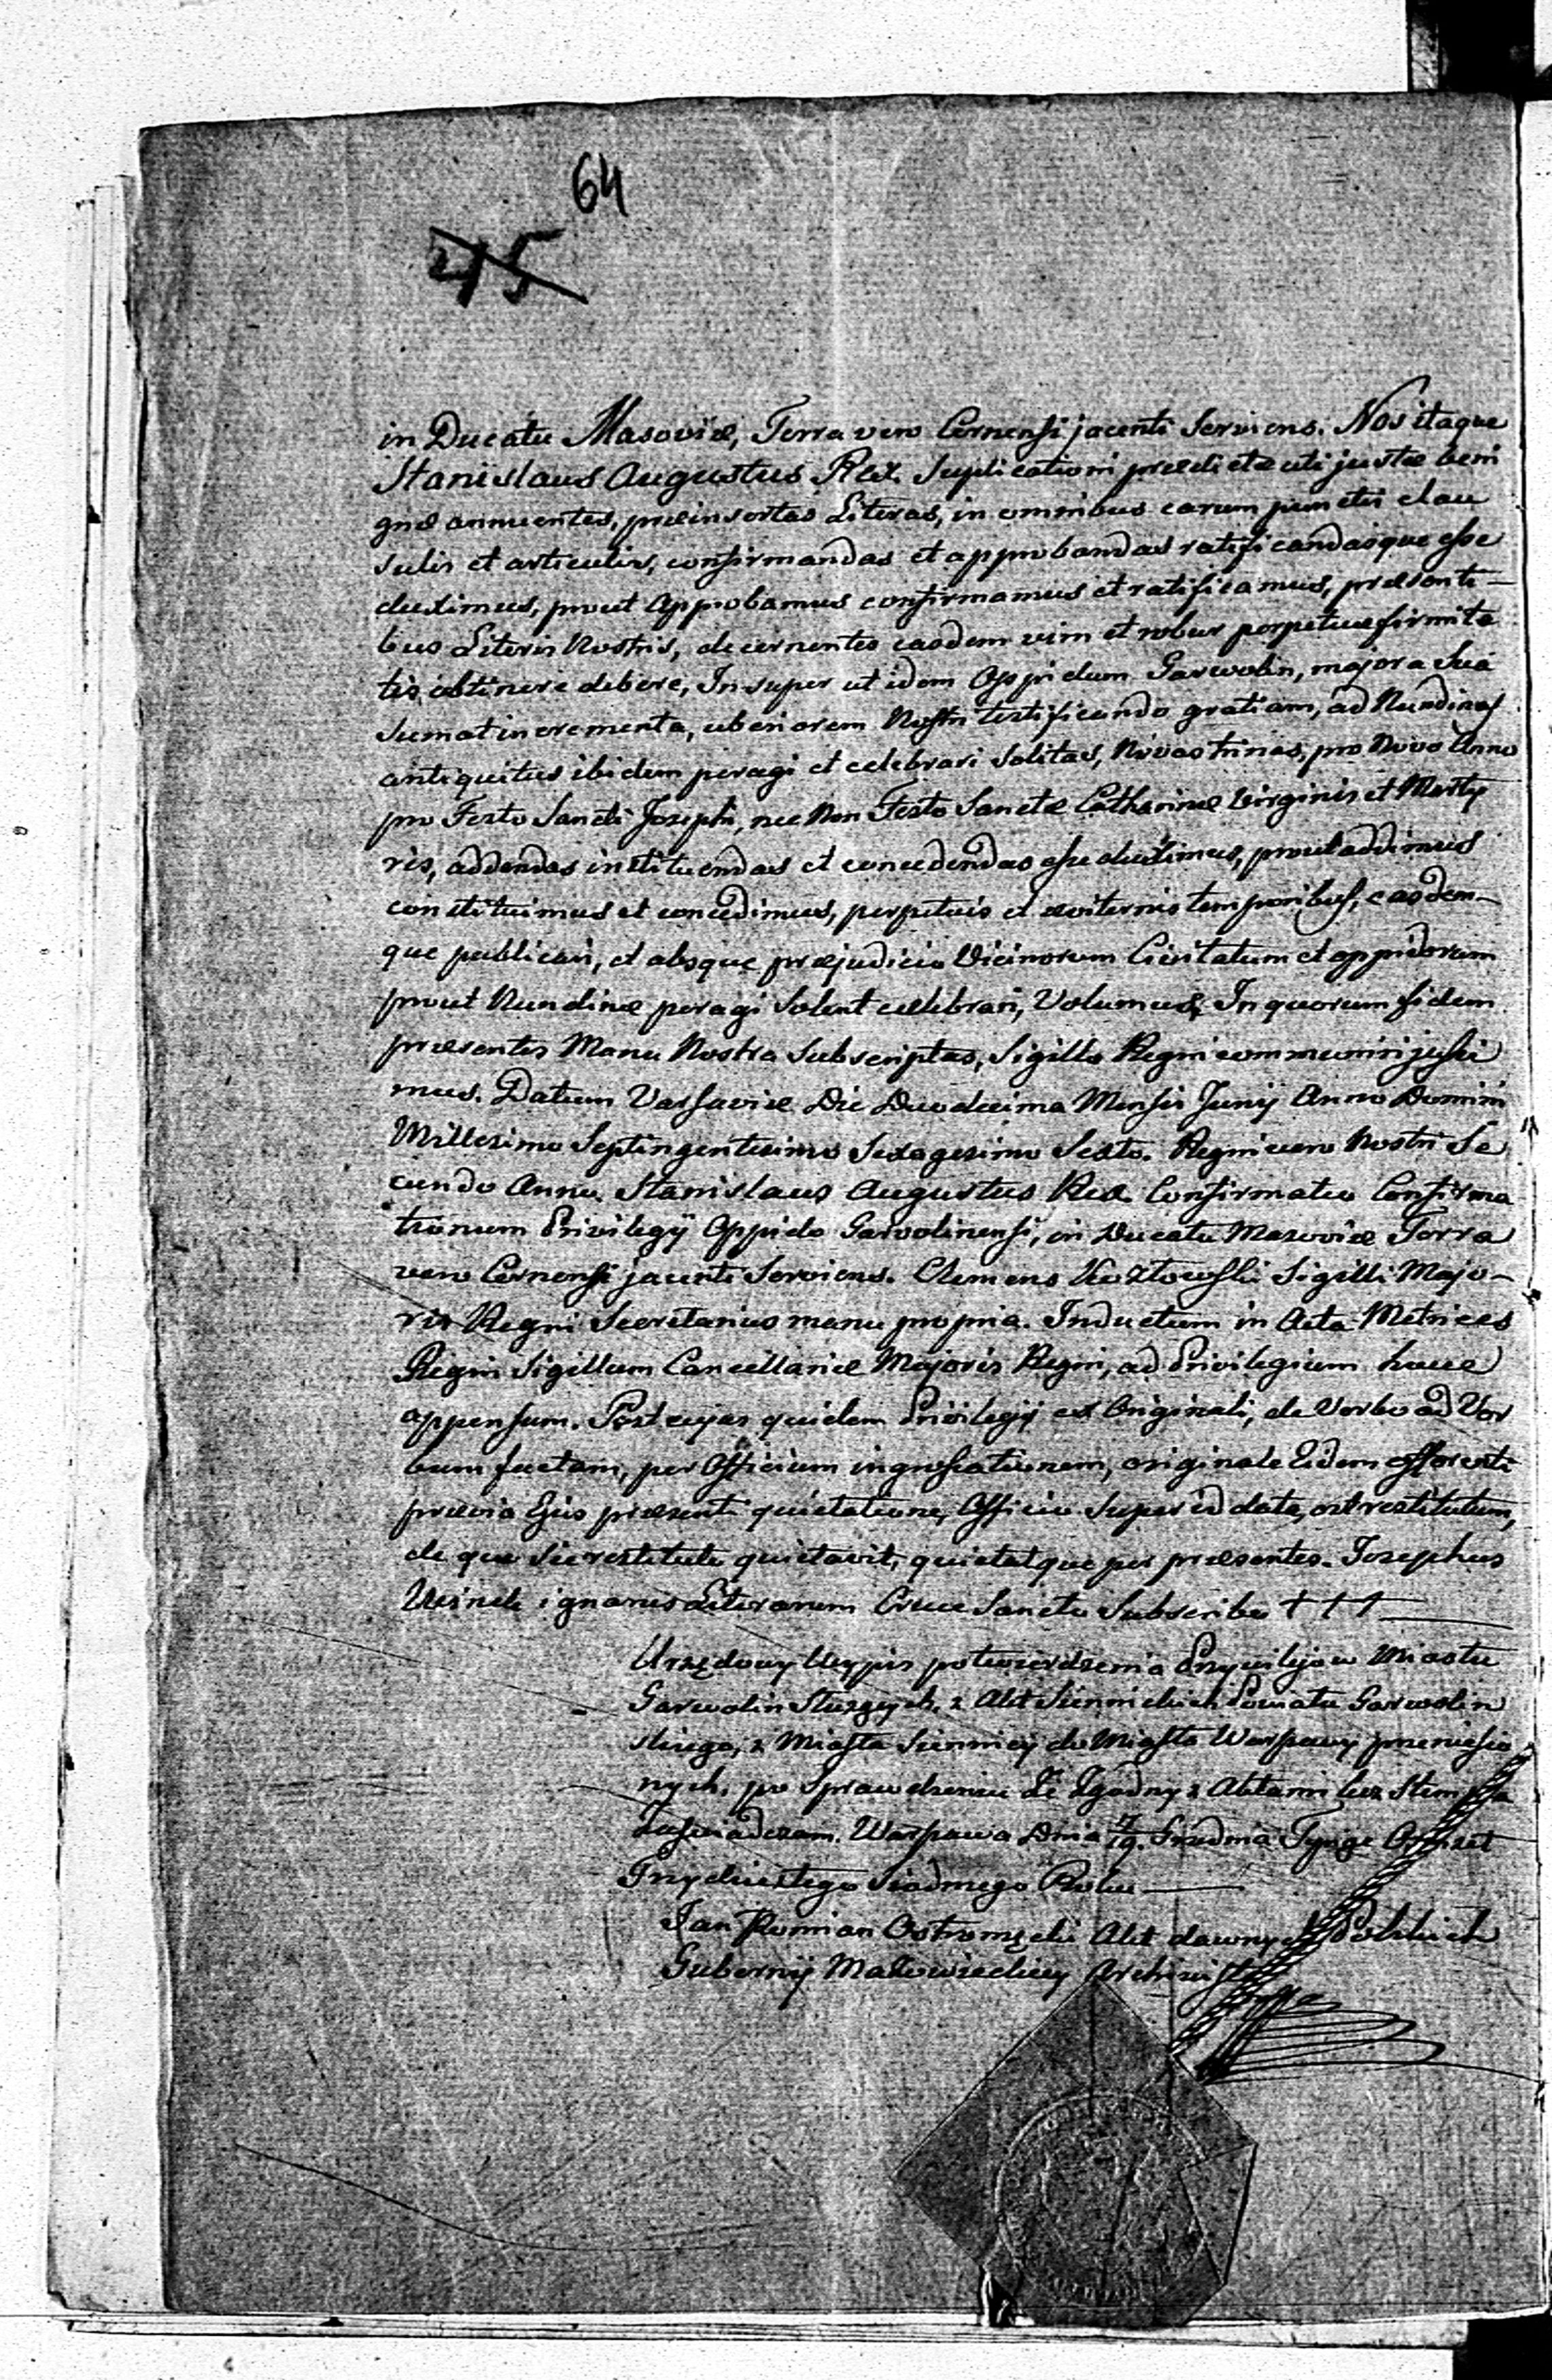 64
45
in Ducatu Masoviæ, Terra vero Cernensi jacenti Serviens. Nos itaque
Stanislaus Augustus Rex. Suplicationi prædictæ uti justæ beni
gnæ annuentes, præinsertas Literas, in omnibus earum punctis clau
sulis et articulis, confirmandas et approbandas ratificandasque esse
duximus, prout Approbamus confirmamus et ratificamus, præsenti-
bus Literis Nostris, decernentes easdem vim et robur perpetuæ firmita
tis obtinere debere, Insuper ut idem Oppidum Garwolin, majora sua
sumat incrementa, uberiorem Nostri testificando gratiam, ad Nundinas
antiquitus ibidem peragi et celebrari solitas, Novas trinas, pro Novo Anno
pro Festo Sancti Josephi, nec Non Festo Sanctæ Catharinæ Virginis et Marty
ris, addendas instituendas et concedendas esse duximus, prout addimus
constituimus et concedimus, perpetuis et æviternis temporibus, easdem-
que publicari, et absque præjudicio Vicinorum Civitatum et oppidorum
prout Nundinæ peragi solent celebrari, Volumus, In quorum fidem
præsentes Manu Nostra Subscriptas, Sigillo Regni communiri jussi
mus. Datum Varsaviæ Die Duodecima Mensis Junij Anno Domini
Millesimo Septingentesimo Sexagesimo Sexto. Regni vero Nostri Se
cundo Anno. Stanislaus Augustus Rex. Confirmatio Confirma
tionum Privilegij Oppido Garvolinensi, in Ducatu Masoviæ Terra
vero Cernensi jacenti Serviens. Clemens Kozłowski Sigilli Majo-
ris Regni Secretarius manu propria. Inductum in Acta Metrices
Regni Sigillum Cancellariæ Majoris Regni, ad Privilegium hocce
appensum. Post cujus quidem Privilegij ex Originali, de Verbo ad Ver
bum factam, per Officium ingrossationem, originale Eidem offerenti
prævia Ejus præsenti quietatione, Officio super id data, est restitutum,
de quo sic restituto quietavit, quietatque per præsentes. Josephus
ignarus Literarum Cruce Sancta Subscribo † † †
Urzędowy Wypis potwierdzenia Przywilejow Miastu
Garwolin Służących, z Akt Siennickich Powiatu Garwolin
skiego, z Miasta Siennicy do Miasta Warszawy przeniesio
nych, po Sprawdzeniu Że Zgodny z Aktami bez Stempla
Zaświadczam. Warszawa Dnia 7/19. Grudnia Tysiąc Ośmset
Trzydziestego Siodmego Roku
Jan Ostromęcki Akt dawnych Polskich
Gubernij Mazowieckiey Archiwista